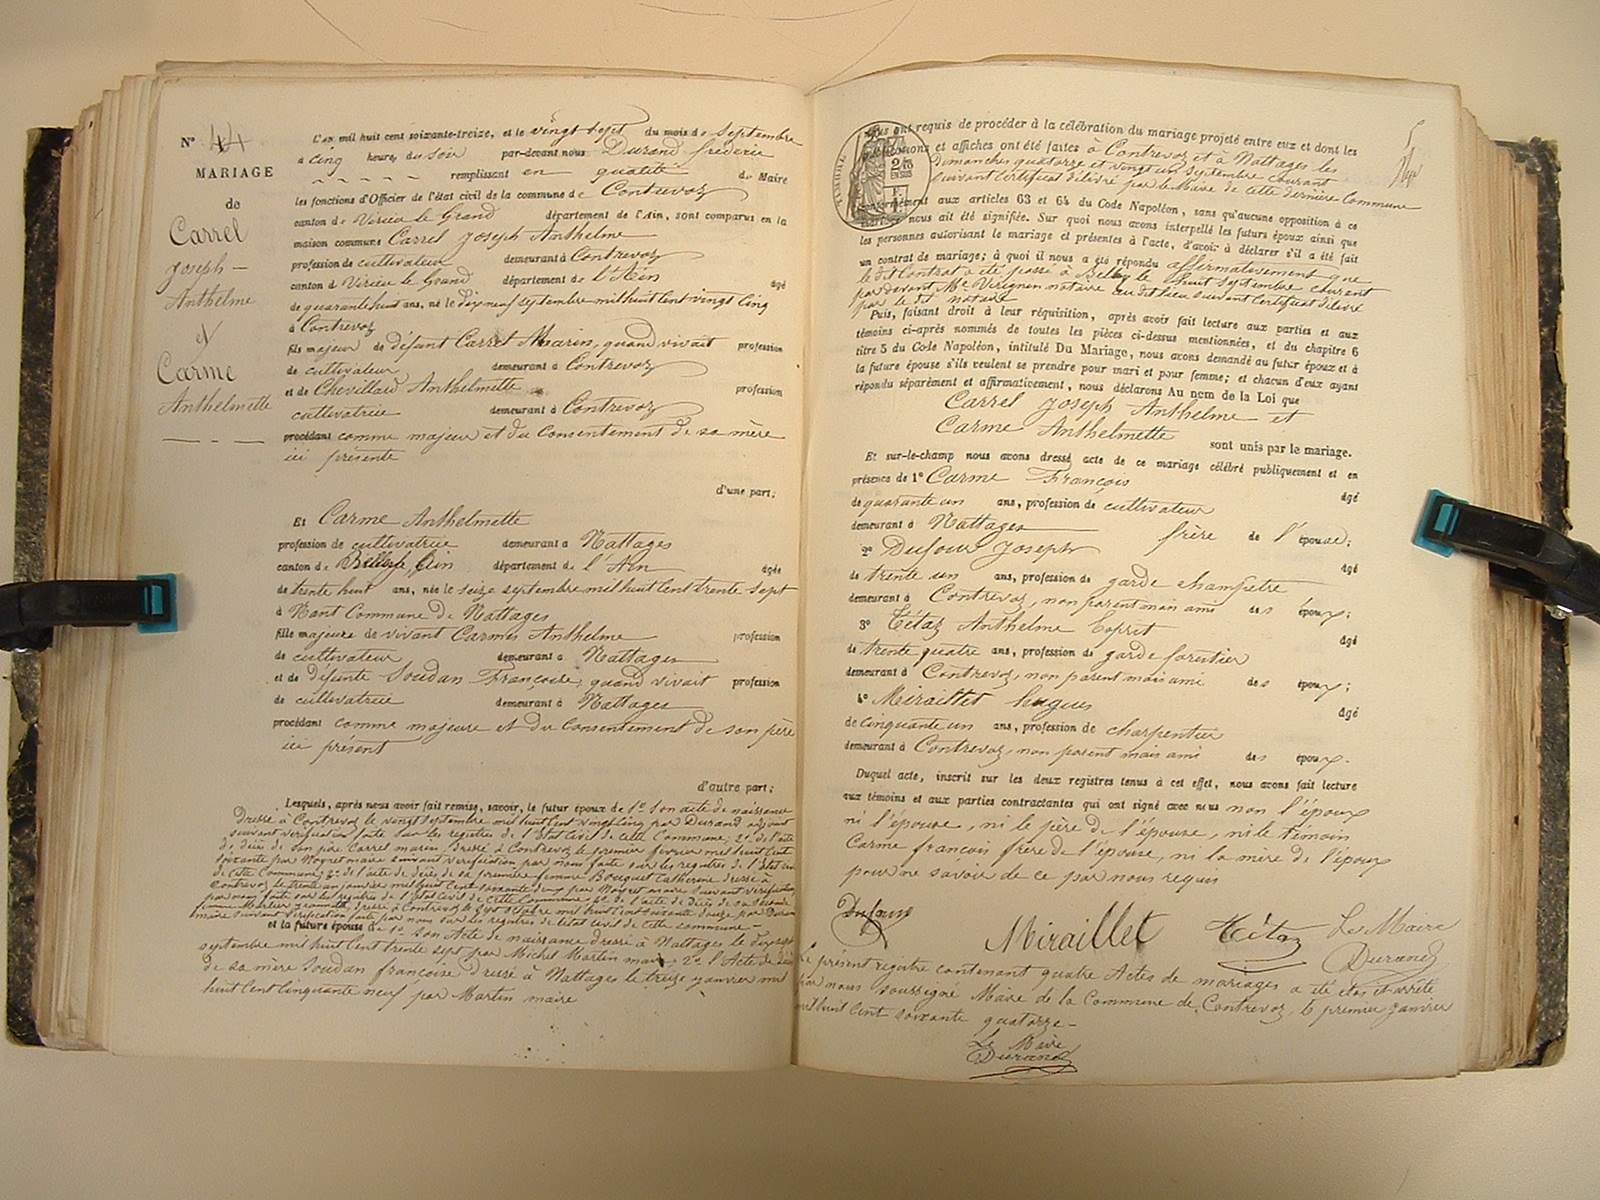 N° 44
MARIAGE
de
Carrel
Joseph —
Anthelme
et
Carme
Anthelmette
L'an mil huit cent soixante-treize, et le vingt sept du mois de Septembre
à cinq heures du soir par-devant nous Durand frédéric
remplissant en qualité de Maire
les fonctions d'Officier de l'état civil de la commune de Contrevoz
canton de Virieu le Grand département de l'Ain, sont comparus en la
maison commune Carrel Joseph Anthelme
profession de cultivateur demeurant à Contrevoz
canton de Virieu le Grand département de l'Ain âgé
de quarante huit ans, né le dix neuf septembre mil huit cent vingt cinq
à Contrevoz
fils majeur de défunt Carrel Marin, quand vivait profession
de cultivateur demeurant à Contrevoz
et de Chevillard Anthelmette profession
cultivatrice demeurant à Contrevoz
procédant comme majeur et du Consentement de sa mère
ici présente
d'une part;
Et Carme Anthelmette
profession de cultivatrice demeurant à Nattages
canton de Belley, Ain département de l'Ain âgée
de trente huit ans, née le seize septembre mil huit cent trente sept
à Nant Commune de Nattages
fille majeure de vivant Carme Anthelme profession
de cultivateur demeurant à Nattages
et de défunte Soudan Françoise, quand vivait profession
de cultivatrice demeurant à Nattages
procédant comme majeure et du Consentement de son père
ici présent
d'autre part;
Lesquels, après nous avoir fait remise, savoir, le futur époux de 1° son acte de naissance
dressé à Contrevoz le vingt septembre mil huit cent vingt cinq par Durand adjoint
suivant vérification faite sur les registres de l'Etat civil de cette Commune; 2° de l'acte
de décès de son père Carrel marin, dressé à Contrevoz le premier février mil huit cent
soixante par Noyret maire suivant vérification par nous faite sur les registres de l'Etat civil
de cette Commune; 3° de l'acte de décès de sa première femme Bouquet Catherine dressé à
Contrevoz le trente un janvier mil huit cent soixante deux par Noyret maire suivant vérification
par nous faite sur les registres de l'Etat civil de cette Commune 4° de l'acte de décès de sa seconde
femme Martier jeannette dressé à Contrevoz le octobre mil huit cent soixante douze par Durand
maire suivant vérification faite par nous sur les registres de l'état civil de cette commune —
et la future épouse de 1° son Acte de naissance dressé à Nattages le dix sept
septembre mil huit cent trente sept par Michel Martin maire, 2° l'Acte de décès
de sa mère Soudan françoise dressé à Nattages le treize janvier mil
huit cent cinquante neuf par Martin maire
nous ont requis de procéder à la célébration du mariage projeté entre eux et dont les
publications et affiches ont été faites à Contrevoz et à Nattages les
dimanches quatorze et vingt un septembre courant
suivant certificat délivré par le Maire de cette dernière Commune
conformément aux articles 63 et 64 du Code Napoléon, sans qu'aucune opposition à ce
mariage nous ait été signifiée. Sur quoi nous avons interpellé les futurs époux ainsi que
les personnes autorisant le mariage et présentes à l'acte, d'avoir à déclarer s'il a été fait
un contrat de mariage; à quoi il nous a été répondu affirmativement que
le dit Contrat a été passé à Belley le huit septembre courant
par devant Me notaire au dit lieu suivant certificat délivré
par le dit notaire
Puis, faisant droit à leur réquisition, après avoir fait lecture aux parties et aux
témoins ci-après nommés de toutes les pièces ci-dessus mentionnées, et du chapitre 6
titre 5 du Code Napoléon, intitulé Du Mariage, nous avons demandé au futur époux et à
la future épouse s'ils veulent se prendre pour mari et pour femme; et chacun d'eux ayant
répondu séparément et affirmativement, nous déclarons Au nom de la Loi que
Carrel Joseph Anthelme et
Carme Anthelmette
sont unis par le mariage.
Et sur-le-champ nous avons dressé acte de ce mariage célébré publiquement et en
présence de 1° Carme François âgé
de quarante un ans, profession de cultivateur
demeurant à Nattages frère de l'épouse;
2° Dufour Joseph âgé
de trente un ans, profession de garde champêtre
demeurant à Contrevoz, non parent mais ami des époux;
3° Tétaz Anthelme Esprit âgé
de trente quatre ans, profession de garde forestier
demeurant à Contrevoz, non parent mais ami des époux;
4° Miraillet hugues âgé
de cinquante un ans, profession de charpentier
demeurant à Contrevoz, non parent mais ami des époux.
Duquel acte, inscrit sur les deux registres tenus à cet effet, nous avons fait lecture
aux témoins et aux parties contractantes qui ont signé avec nous non l'époux
ni l'épouse, ni le père de l'épouse, ni le témoin
Carme françois frère de l'épouse, ni la mère de l'époux
pour ne savoir de ce par nous requis
Dufour
Miraillet Tétaz Le Maire
Durand
Le présent registre contenant quatre Actes de mariages a été clos et arrêté
par nous soussigné Maire de la Commune de Contrevoz, le premier janvier
mil huit cent soixante quatorze —
Le Maire
Durand